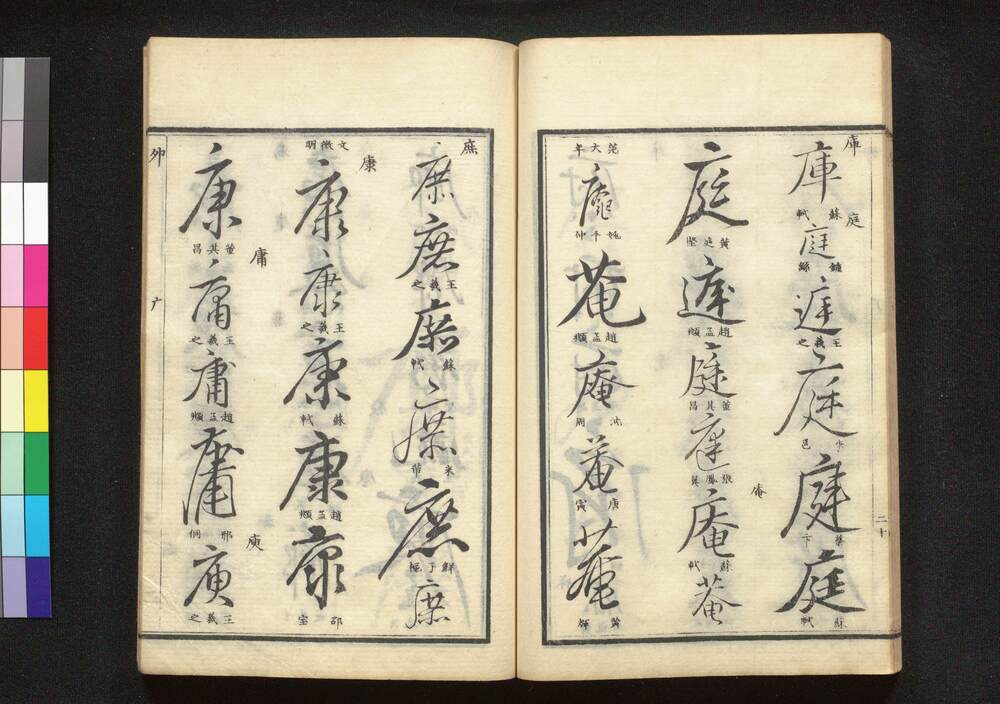 庫
庫
蘇軾
庭
庭
鍾繇
庭
王羲之
庭
李邕
庭
蔡卞
庭
蘇軾
二十
庭
黃庭堅
庭
趙孟頫
庭
董其昌
庭
張鳳翼
庵
庵
蘇軾
菴
范大年
庵
姚平仲
菴
趙孟頫
庵
沈周
菴
唐寅
菴
黃輝
庶
庶
庶
王羲之
庶
蘇軾
庶
米芾
庶
鮮于樞
庶
文徵明
康
康
康
王羲之
康
蘇軾
康
趙孟頫
康
邵宝
康
董其昌
庸
庸
王羲之
庸
趙孟頫
庸
邢侗
庚
庚
王羲之
卯
广